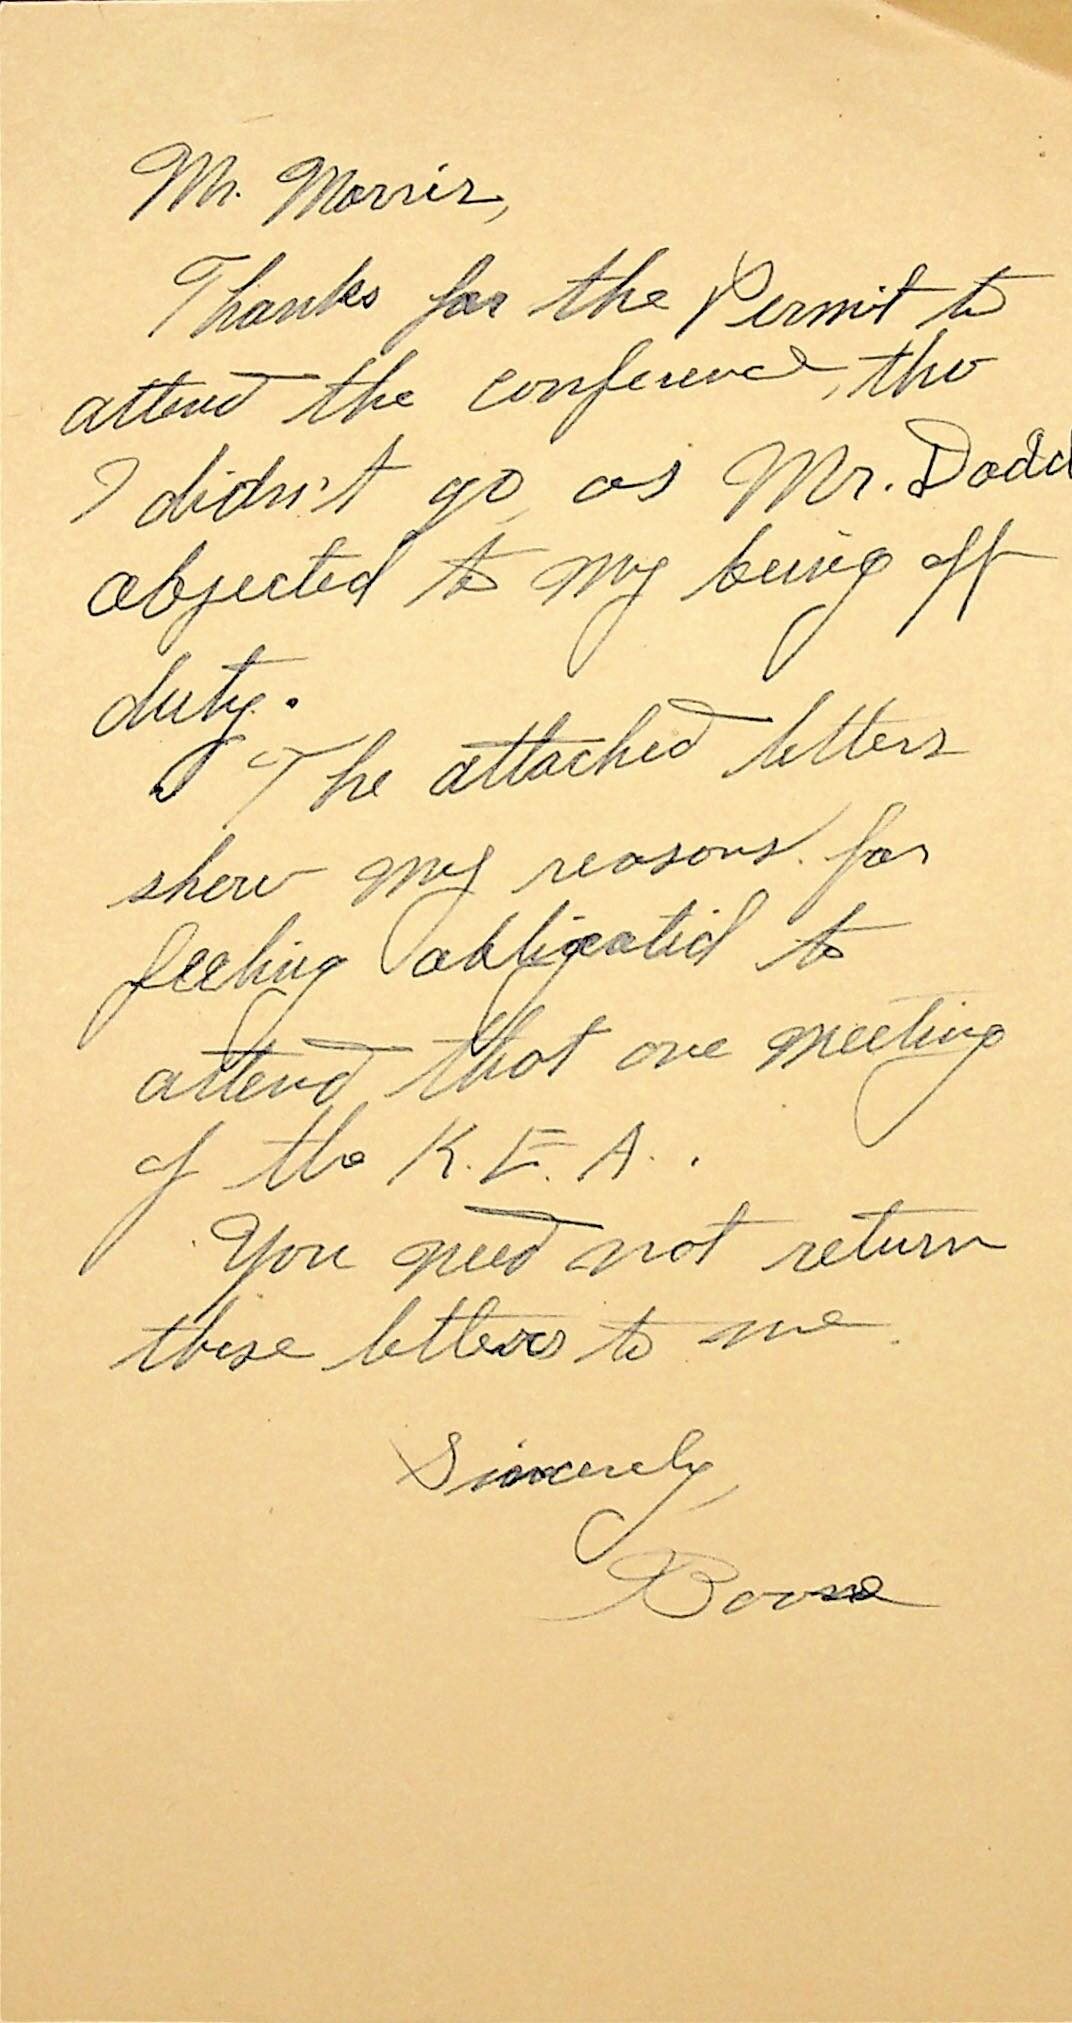 Mr. Morris,
Thanks for the Permit to
attend the conference, tho
I didn't go, as Mr. Dodd
objected to my being off
duty.
The attached letters
show my reasons for
feeling obligated to
attend that one meeting
of the K.E.A..
You need not return
these letters to me.
Sincerely,
Boone